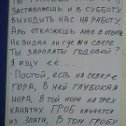 ЗАСТАВЛЯЕШЬ И В СУББОТУ
ВЫХОДИТЬ НАС НА РАБОТУ
АЛЬ ОТКАЖЕШЬ МНЕ В ОТВЕТЕ
НЕ ВИДАЛ ЛИ ГДЕ НА СВЕТЕ
ТЫ ЗАРПЛАТЫ ГОДОВОЙ?
Я ИЩУ ЕЁ...
- ПОСТОЙ, ЕСТЬ НА СЕВЕРЕ
ГОРА, В НЕЙ ГЛУБОКАЯ
НОРА, В ТОЙ НОРЕ НА ТРЁХ
ГРОБ КАЧАЕТСЯ
ИЗ ЗЛАТА, В ТОМ ГРОБУ